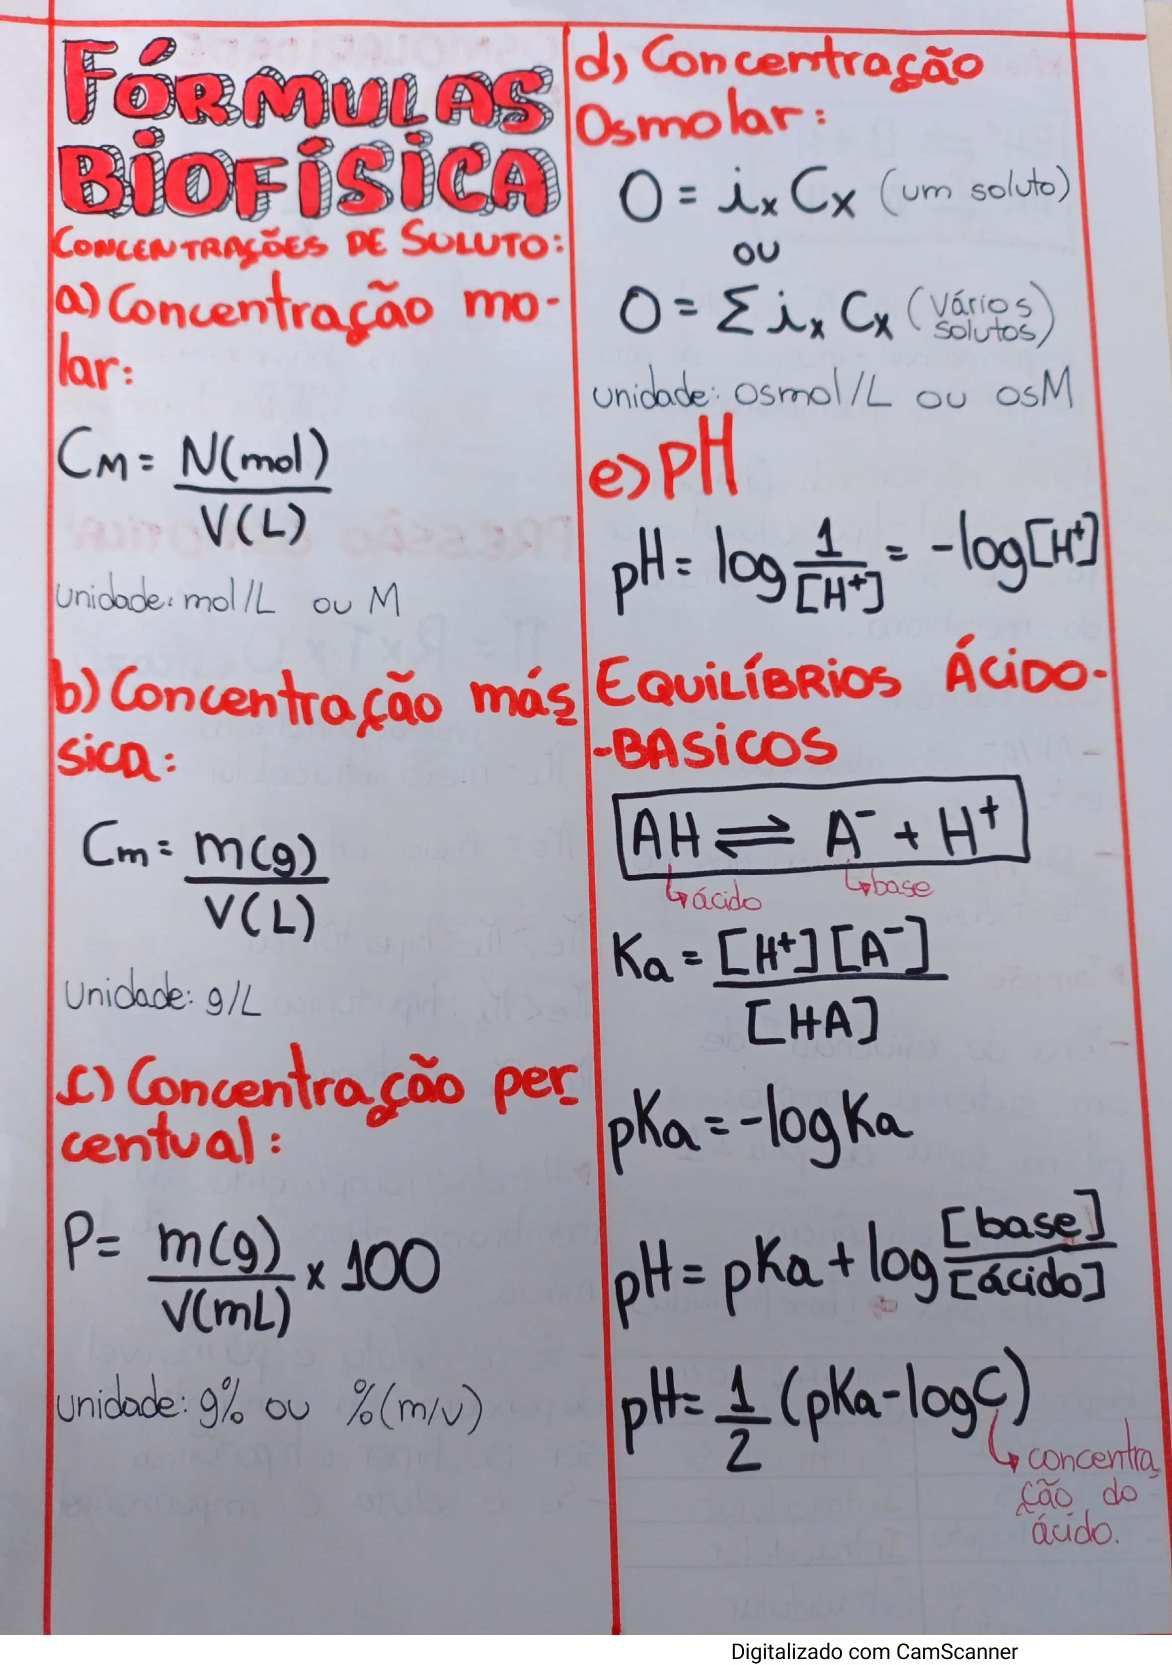 FÓRMULAS
BIOFÍSICA
CONCENTRAÇÕES DE SOLUTO:
a) Concentração mo-
lar:
CM = N(mol)
V(L)
unidade: mol/L ou M
b) Concentração más
sica:
Cm = m(g)
V(L)
Unidade: g/L
c) Concentração per
centual:
P = m(g) x 100
V(mL)
unidade: g% ou %(m/v)
d) Concentração
Osmolar:
O = ix Cx (um soluto)
ou
O = Σ ix Cx (vários
solutos)
unidade: osmol/L ou osM
e) pH
pH = log 1/[H⁺] = -log[H⁺]
EQUILÍBRIOS ÁCIDO-
-BASICOS
AH ⇌ A⁻ + H⁺
↳ácido ↳base
Ka = [H⁺][A⁻]
[HA]
pKa = -logKa
pH = pKa + log [base]
[ácido]
pH = 1/2 (pKa - logC)
↳ concentra
ção do
ácido.
Digitalizado com CamScanner